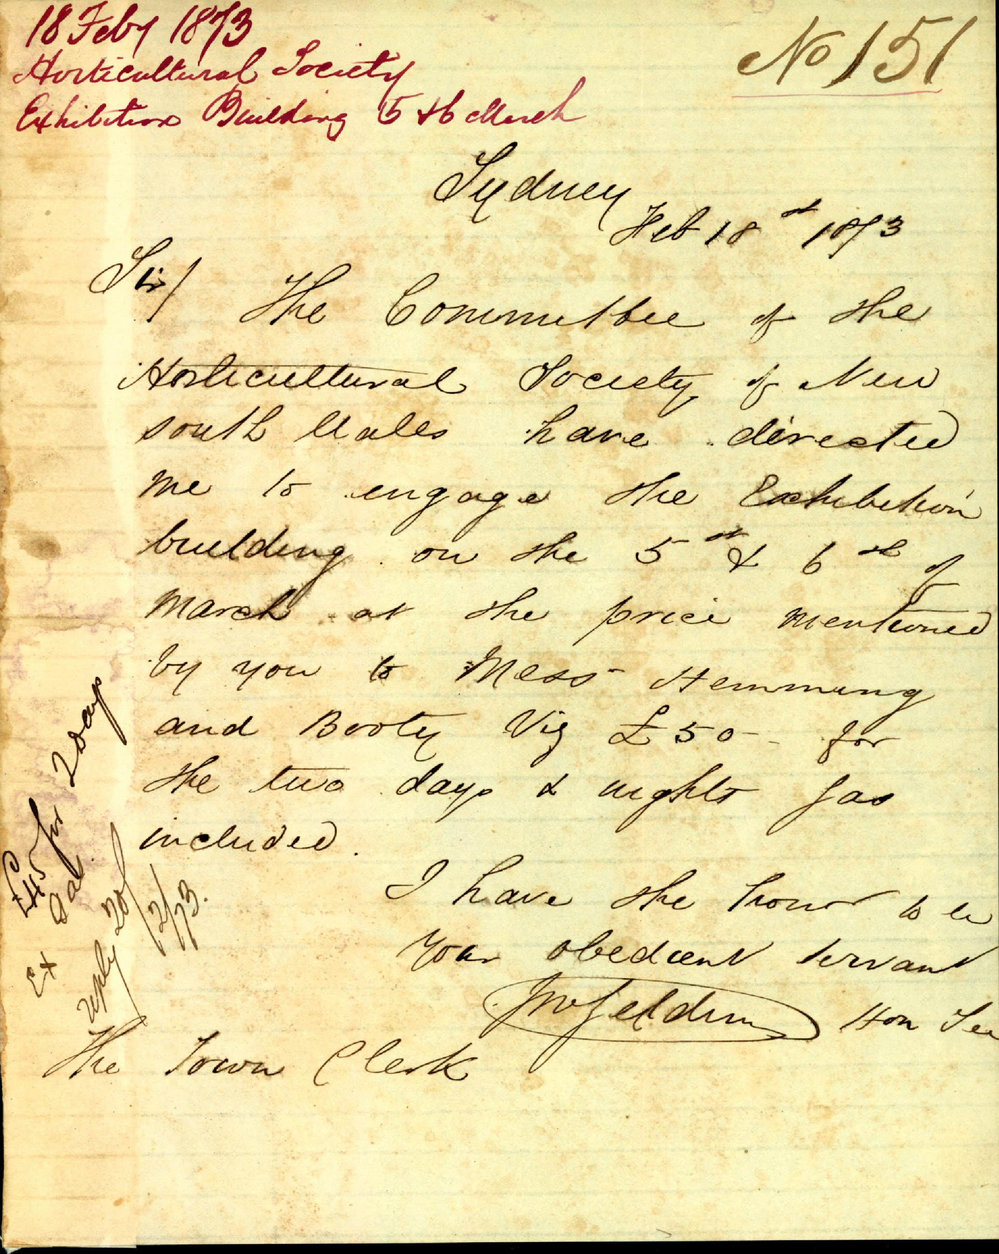 18 Feby 1873
Horticultural Society
Exhibition Building 5 & 6 March
No 151
Sydney
Feb 18th 1873
Sir/ The Committee of the
Horticultural Society of New
South Wales have directed
me to engage the Exhibition
building on the 5th & 6th of
March at the price mentioned
by you to Mess- Hemming
and Booty Viz £50- for
the two days & nights gas
included.
I have the honor to be
your obedient servant
Hon Sec
The Town Clerk
£45 for 2 days
Ex Gal.
reply 20/2/73.